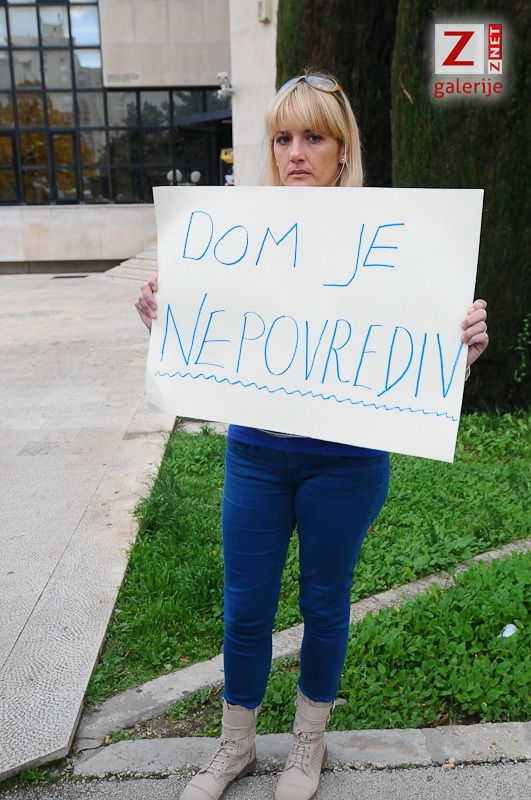 Z ZNET
galerije
DOM JE
NEPOVREDIV